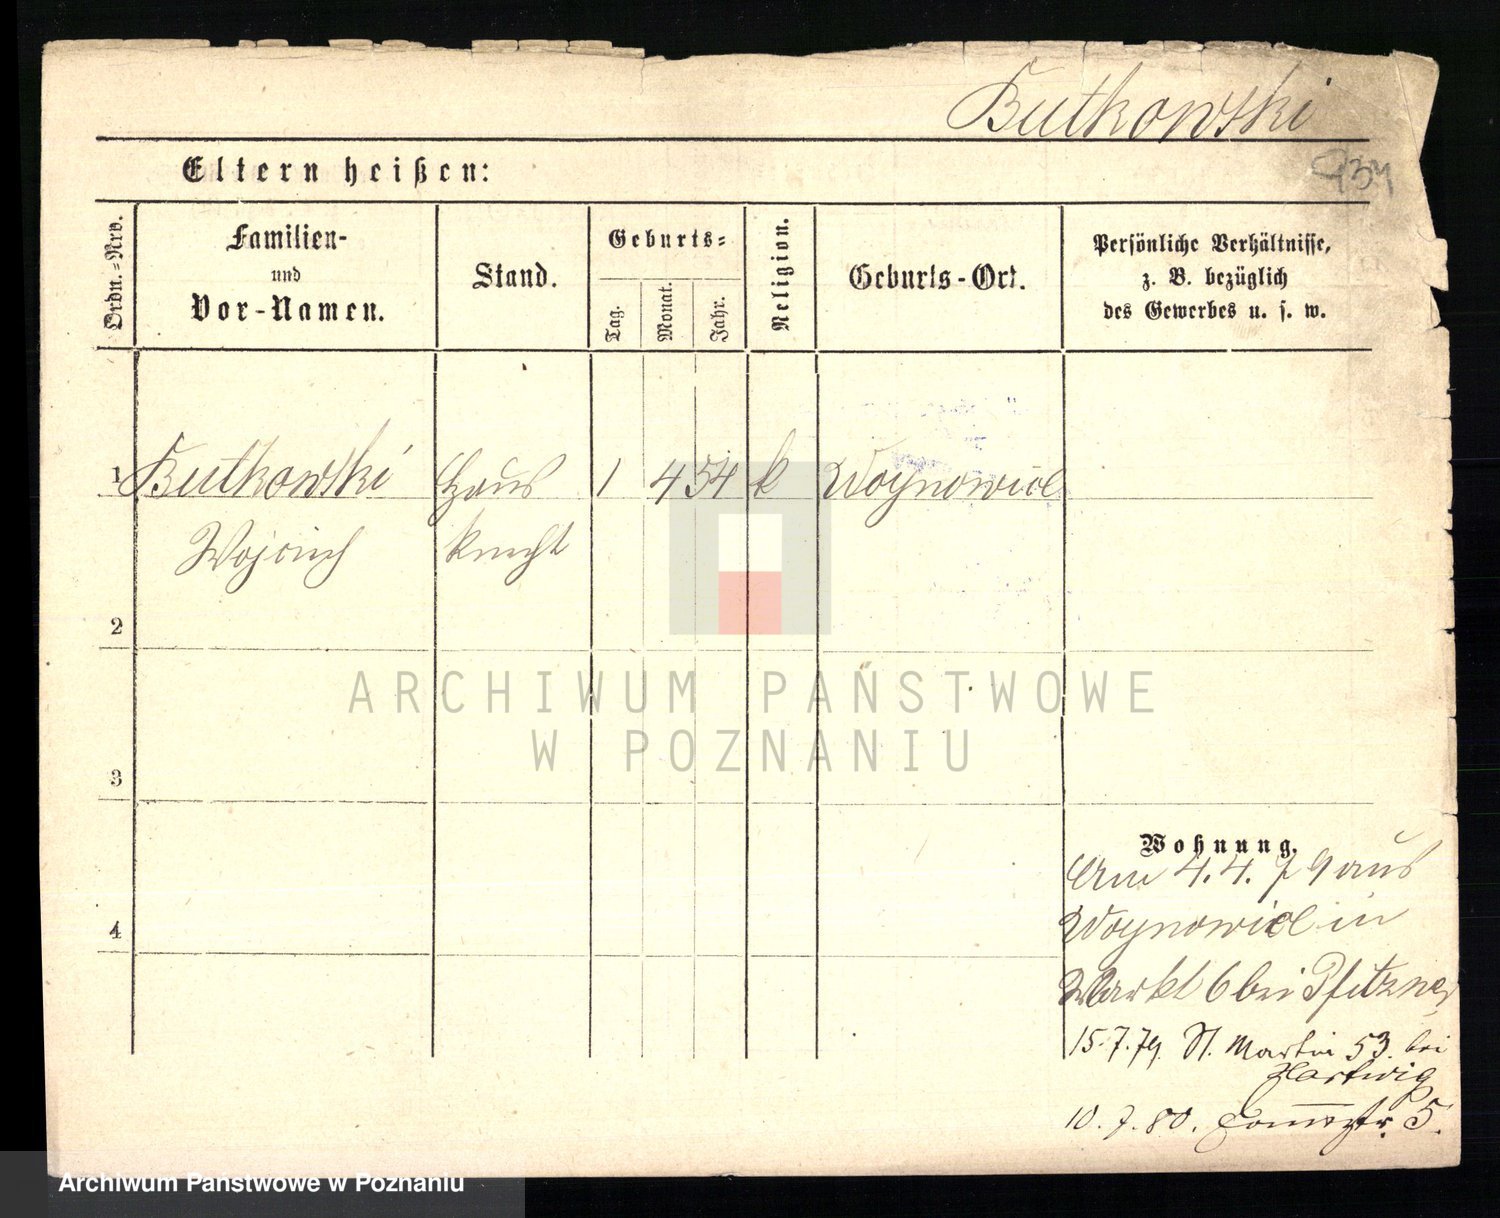 Butkowski
934
Eltern heißen:
Ordn.-Nro.
Familien-
und
Vor-Namen.
Stand.
Geburts-
Tag.
Monat.
Jahr.
Religion.
Geburts-Ort.
Persönliche Verhältnisse,
z. B. bezüglich
des Gewerbes u. s. w.
1 Butkowski Haus 1 4 54 k Woynowice
Wojciech knecht
2
3
4
Wohnung.
Am 4.4.79 aus
Woynowice in
Markt 6 bei Pfitzner
15.7.79. St. Martin 53. bei
Hartwig
10.7.80. 5.
ARCHIWUM PAŃSTWOWE
W POZNANIU
Archiwum Państwowe w Poznaniu